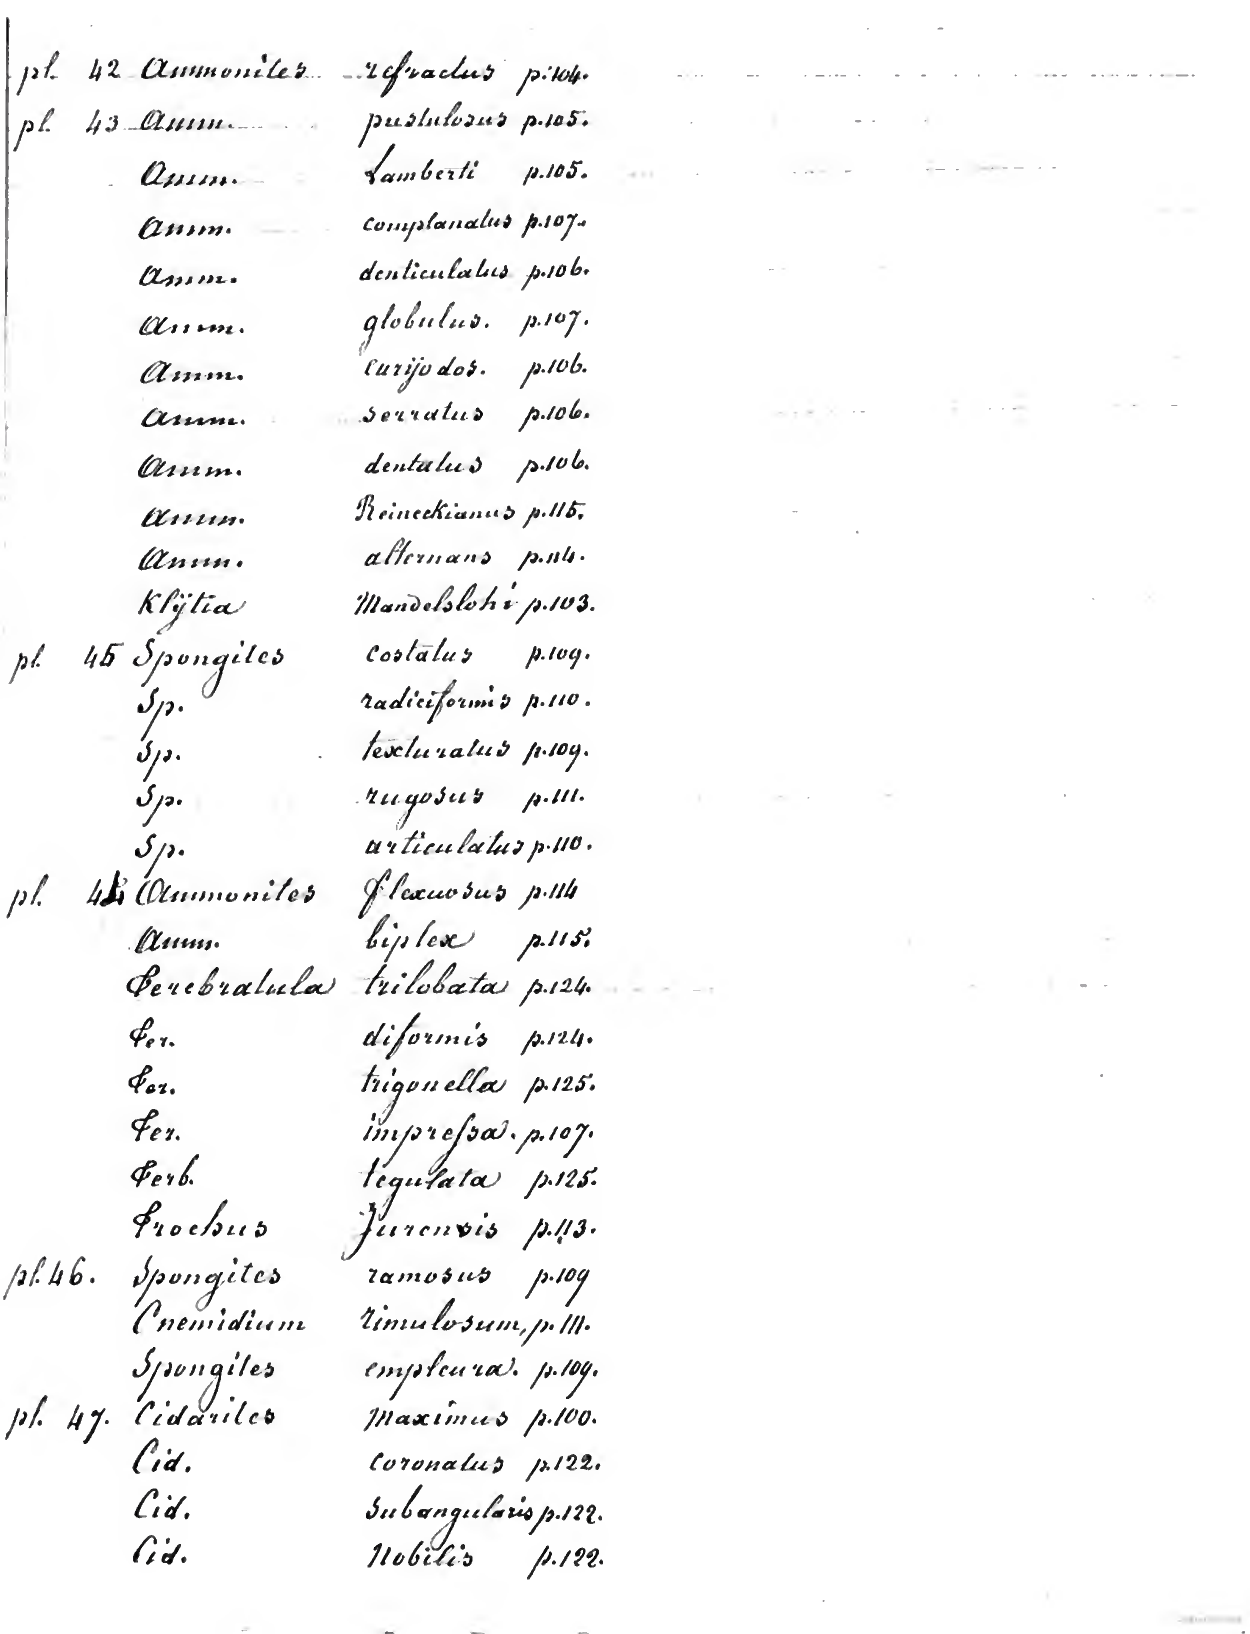 pl. 42 Ammonites refractus p.104.
pl. 43 Amm. pustulosus p.105.
Amm. Lamberti p.105.
Amm. complanatus p.107.
Amm. denticulatus p.106.
Amm. globulus. p.107.
Amm. curijodos. p.106.
Amm. serratus p.106.
Amm. dentatus p.106.
Amm. Reineckianus p.115.
Amm. alternans p.114.
Klÿtia Mandelslohi p.103.
pl. 45 Spongites costatus p.109.
Sp. radiciformis p.110.
Sp. texturatus p.109.
Sp. rugosus p.111.
Sp. articulatus p.110.
pl. Ammonites flexuosus p.114
Amm. biplex p.115.
Terebratula trilobata p.124.
Ter. diformis p.124.
Ter. trigonella p.125.
Ter. impreſsa. p.107.
Terb. tegulata p.125.
Trochus Jurensis p.113.
pl. 46. Spongites ramosus p.109
Cnemidium rimulosum, p.111.
Spongites empleura. p.109.
pl. 47. Cidarites Maximus p.100.
Cid. coronatus p.122.
Cid. Subangularis p.122.
Cid. Nobilis p.122.